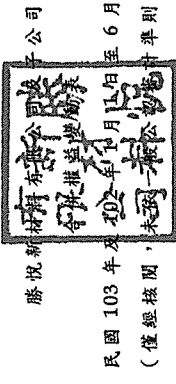 勝悅新材料有限公司及子公司
合併權益變動表
民國 103 年及 102 年 1 月 1 日至 6 月
（僅經核閱，未依一般公認審計準則